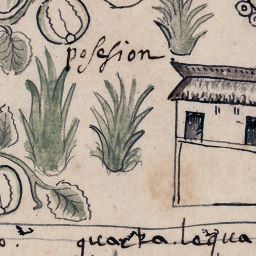 posesion
quarta legua